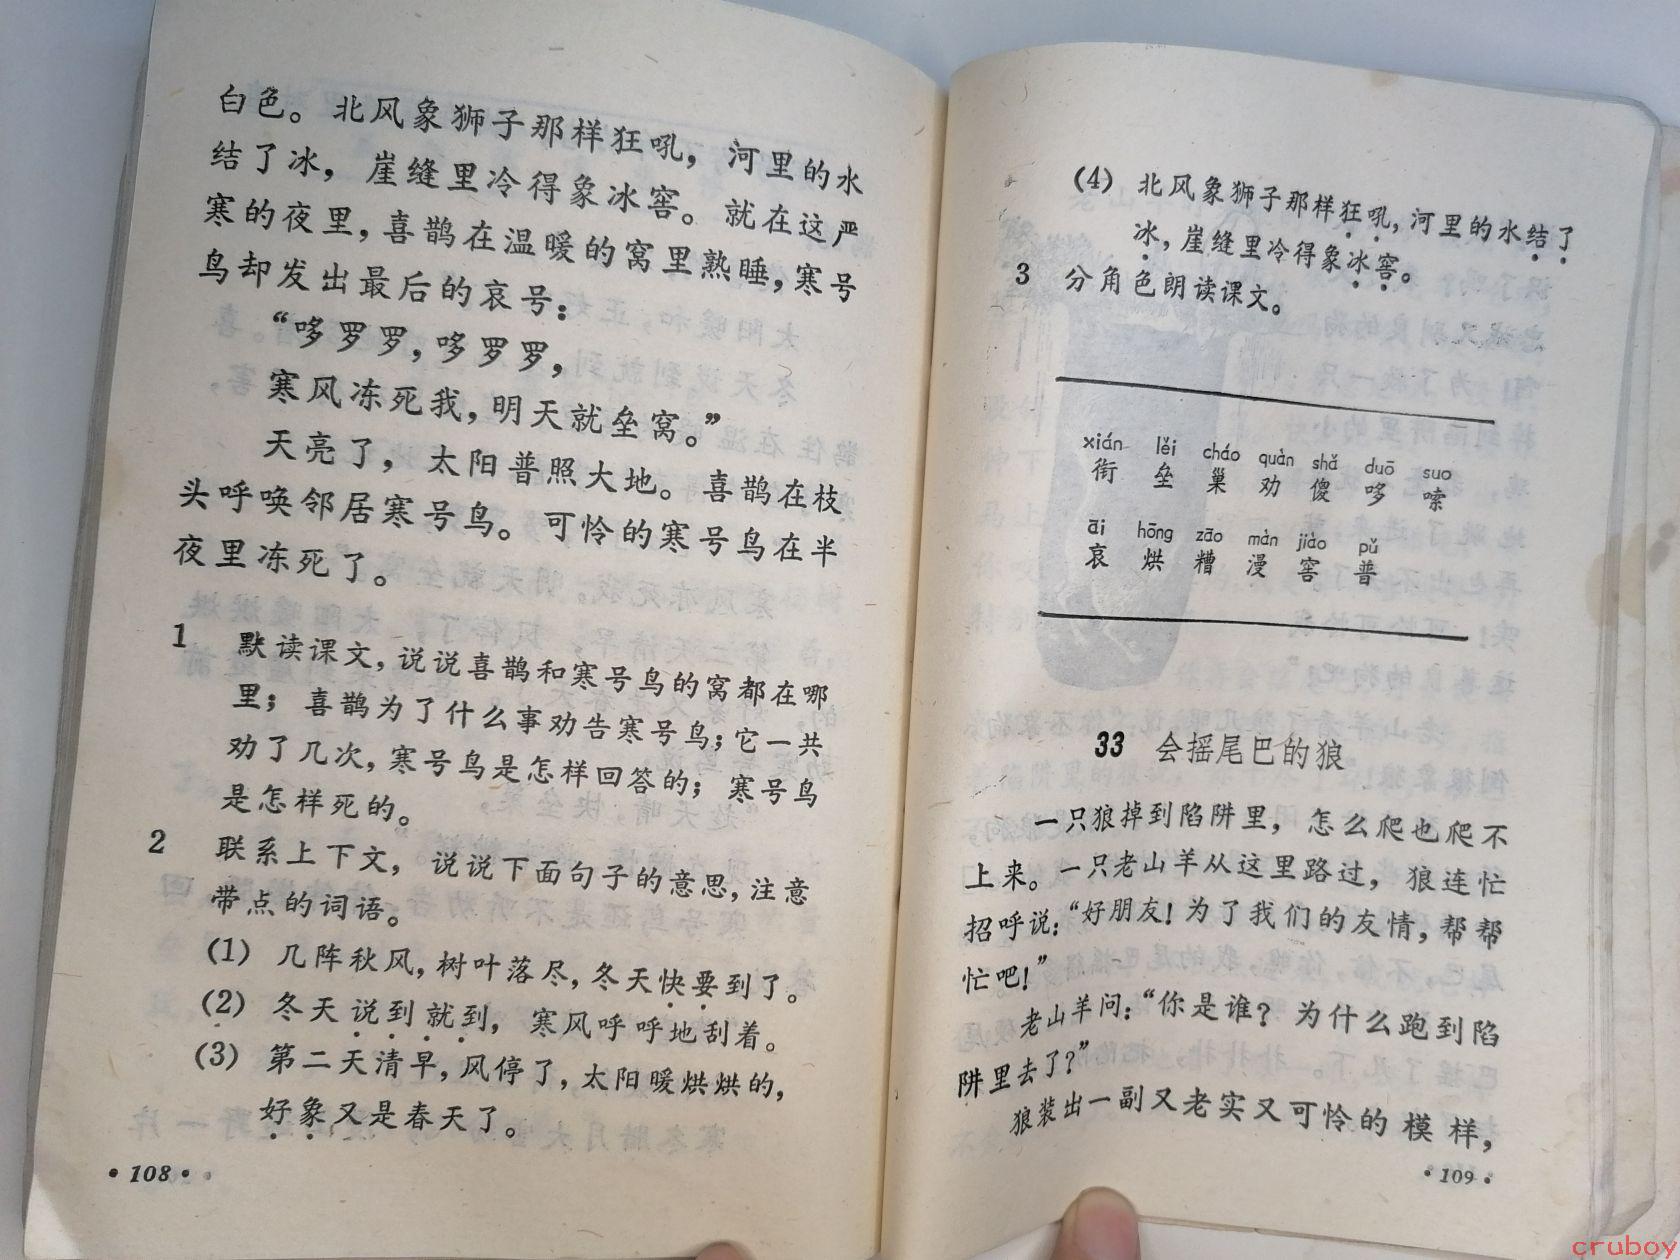 白色。北风象狮子那样狂吼，河里的水
结了冰，崖缝里冷得象冰窖。就在这严
寒的夜里，喜鹊在温暖的窝里熟睡，寒号
鸟却发出最后的哀号：
“哆罗罗，哆罗罗，
寒风冻死我，明天就垒窝。”
天亮了，太阳普照大地。喜鹊在枝
头呼唤邻居寒号鸟。可怜的寒号鸟在半
夜里冻死了。
1 默读课文，说说喜鹊和寒号鸟的窝都在哪
里；喜鹊为了什么事劝告寒号鸟；它一共
劝了几次，寒号鸟是怎样回答的；寒号鸟
是怎样死的。
2 联系上下文，说说下面句子的意思，注意
带点的词语。
(1) 几阵秋风，树叶落尽，冬天快要到了。
(2) 冬天说到就到，寒风呼呼地刮着。
(3) 第二天清早，风停了，太阳暖烘烘的，
好象又是春天了。
·108·
(4) 北风象狮子那样狂吼，河里的水结了
冰，崖缝里冷得象冰窖。
3 分角色朗读课文。
xián lěi cháo quàn shǎ duō suo
衔 垒 巢 劝 傻 哆 嗦
āi hōng zāo màn jiào pǔ
哀 烘 糟 漫 窖 普
33 会摇尾巴的狼
一只狼掉到陷阱里，怎么爬也爬不
上来。一只老山羊从这里路过，狼连忙
招呼说：“好朋友！为了我们的友情，帮帮
忙吧！”
老山羊问：“你是谁？为什么跑到陷
阱里去了？”
狼装出一副又老实又可怜的模样，
·109·
cruboy